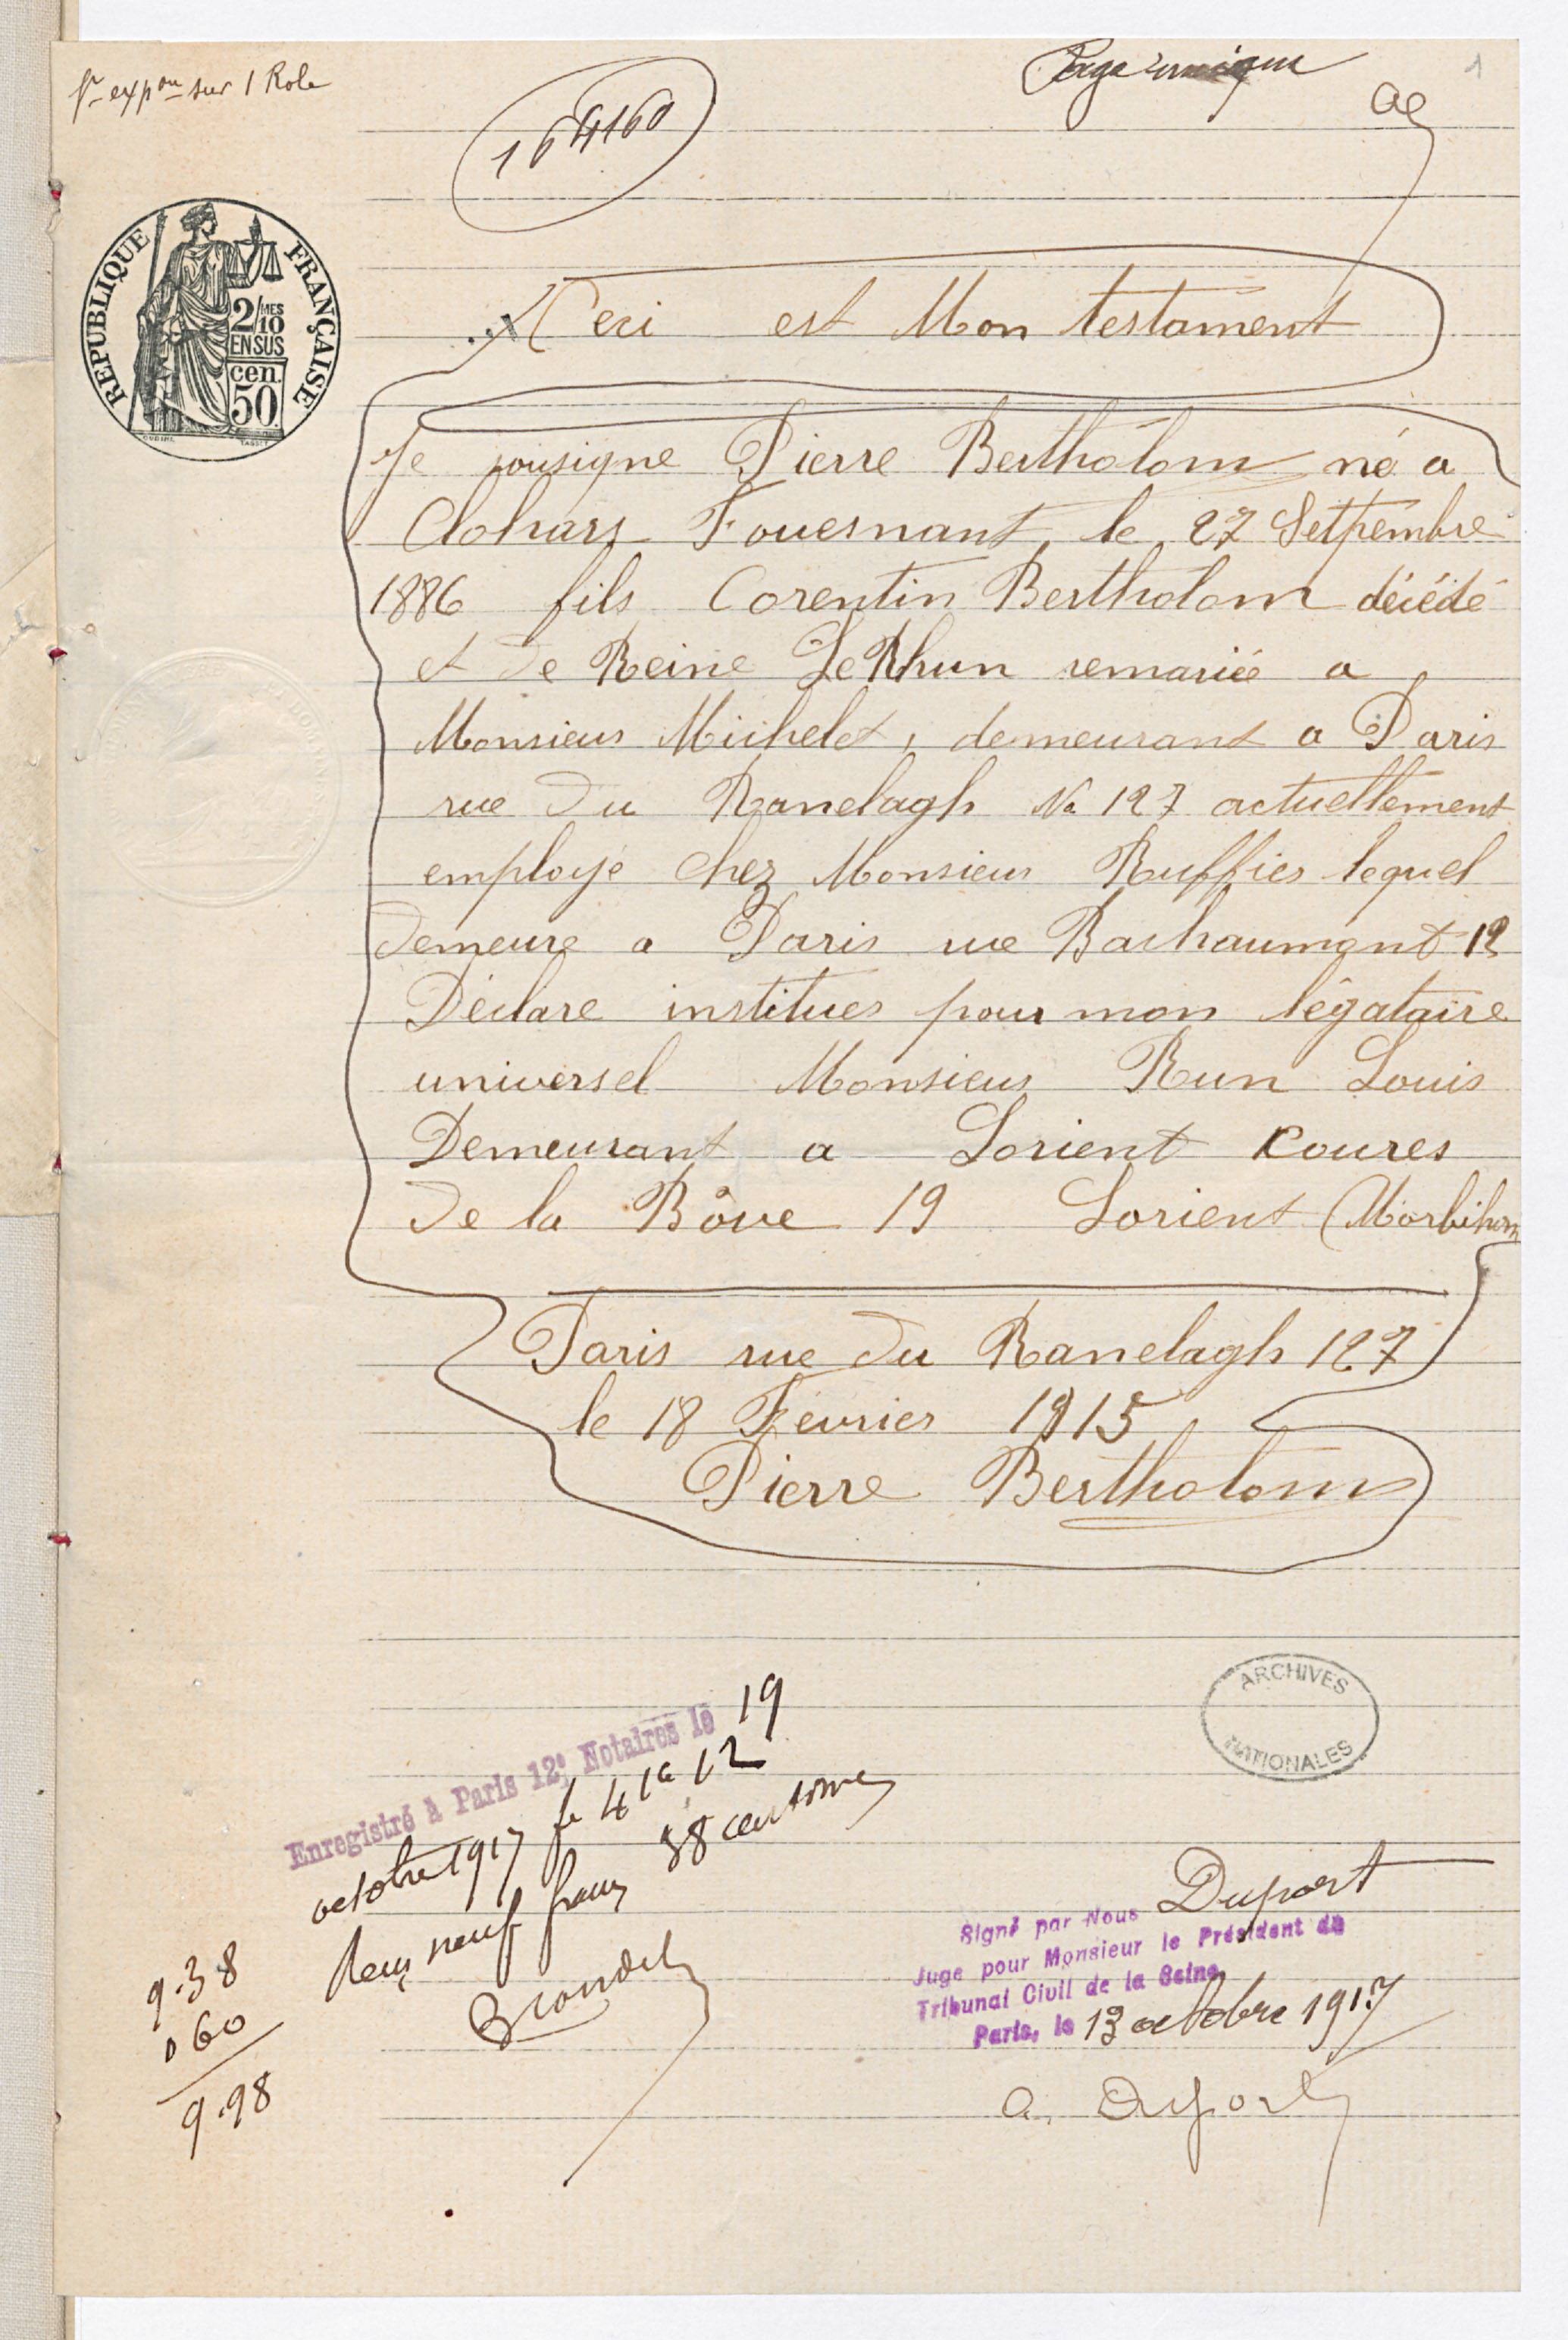 1re expon sur 1 Role
Page unique
1
164160
RÉPUBLIQUE FRANÇAISE
2/10MES
EN SUS
cen.
50.
Ceci est Mon testament
Je sousigne Pierre Bertholom né a
Clohars Fouesnant, le 27 Setpembre
1886 fils Corentin Bertholom décédé
et de Reine Le Rhun remariée a
Monsieur Michelet, demeurant a Paris
rue du Ranelagh No 127 actuellement
employé chez Monsieur Ruffier lequel
demeure a Paris rue Bachaumont 12
Déclare instituer pour mon légataire
universel Monsieur Run Louis
Demeurant a Lorient Coures
de la Bôve 19 Lorient (Morbihan
Paris rue du Ranelagh 127
le 18 Février 1915
Pierre Bertholom
ARCHIVES
NATIONALES
Enregistré à Paris 12e, Notaires le 19
octobre 1917 fo 41 Ca 12
Reçu neuf francs 38 centimes
9.38
060
9.98
Signé par Nous Duport
Juge pour Monsieur le Président du
Tribunal Civil de la Seine
Paris, le 13 octobre 1917
a. Duport